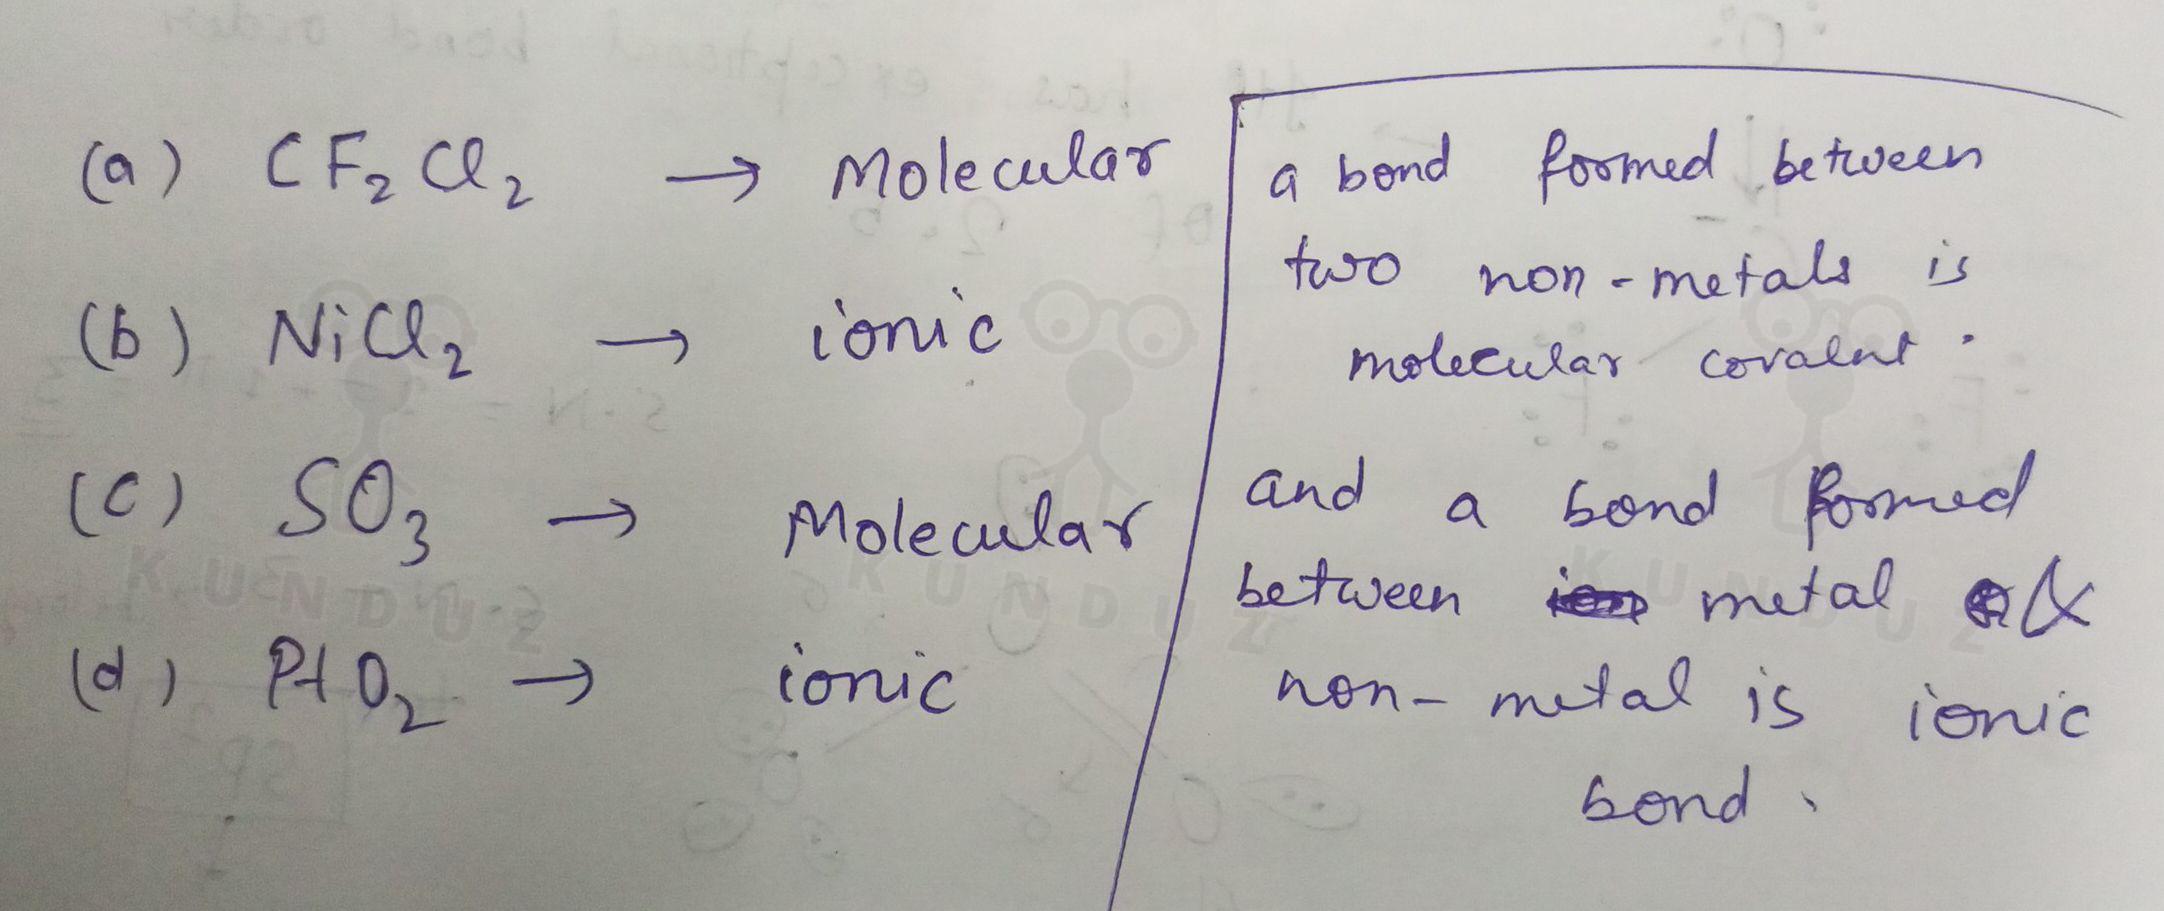 (a) CF₂Cl₂ → Molecular
(b) NiCl₂ → ionic
(c) SO₃ → Molecular
(d) PtO₂ → ionic
a bond formed between
two non-metals is
molecular covalnt.
and a bond formed
between metal &
non-metal is ionic
bond.
KUNDUZ
KUNDUZ
KUNDUZ